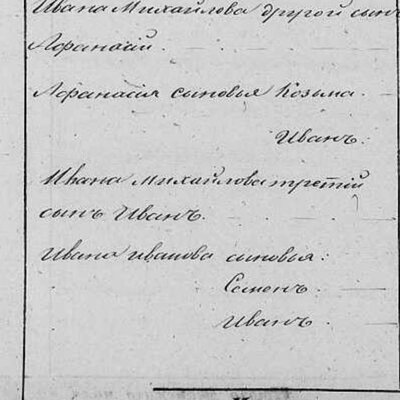 Ивана Михайлова другой сынъ
Афанасий.
Афанасия сыновья Козьма.
Иванъ.
Ивана Михайлова третий
сынъ Иванъ.
Ивана Иванова сыновья:
Семенъ.
Иванъ.